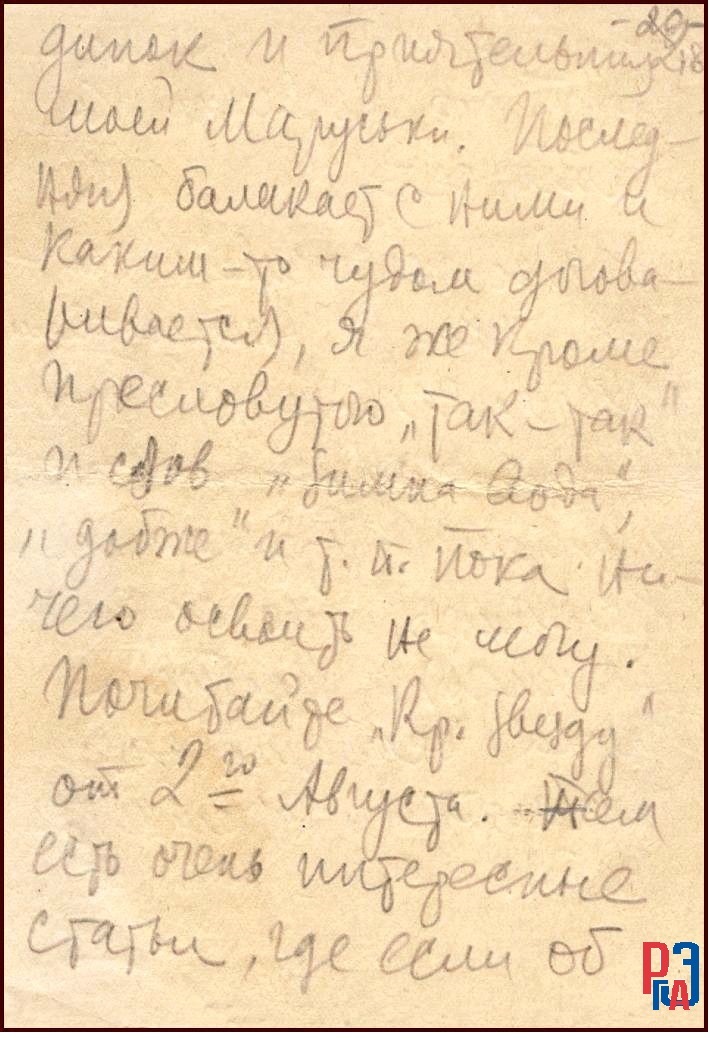 -20-
218
динок и приятельниц
моей Маруськи. Послед-
няя балакает с ними и
каким-то чудом догова-
ривается, я же кроме
пресловутого „так-так"
и слов „зимна вода",
„добже" и т. п. пока ни-
чего освоить не могу.
Почитайте „Кр. Звезду"
от 2го Августа.
есть очень интересные
статьи, где если об
РГЭА